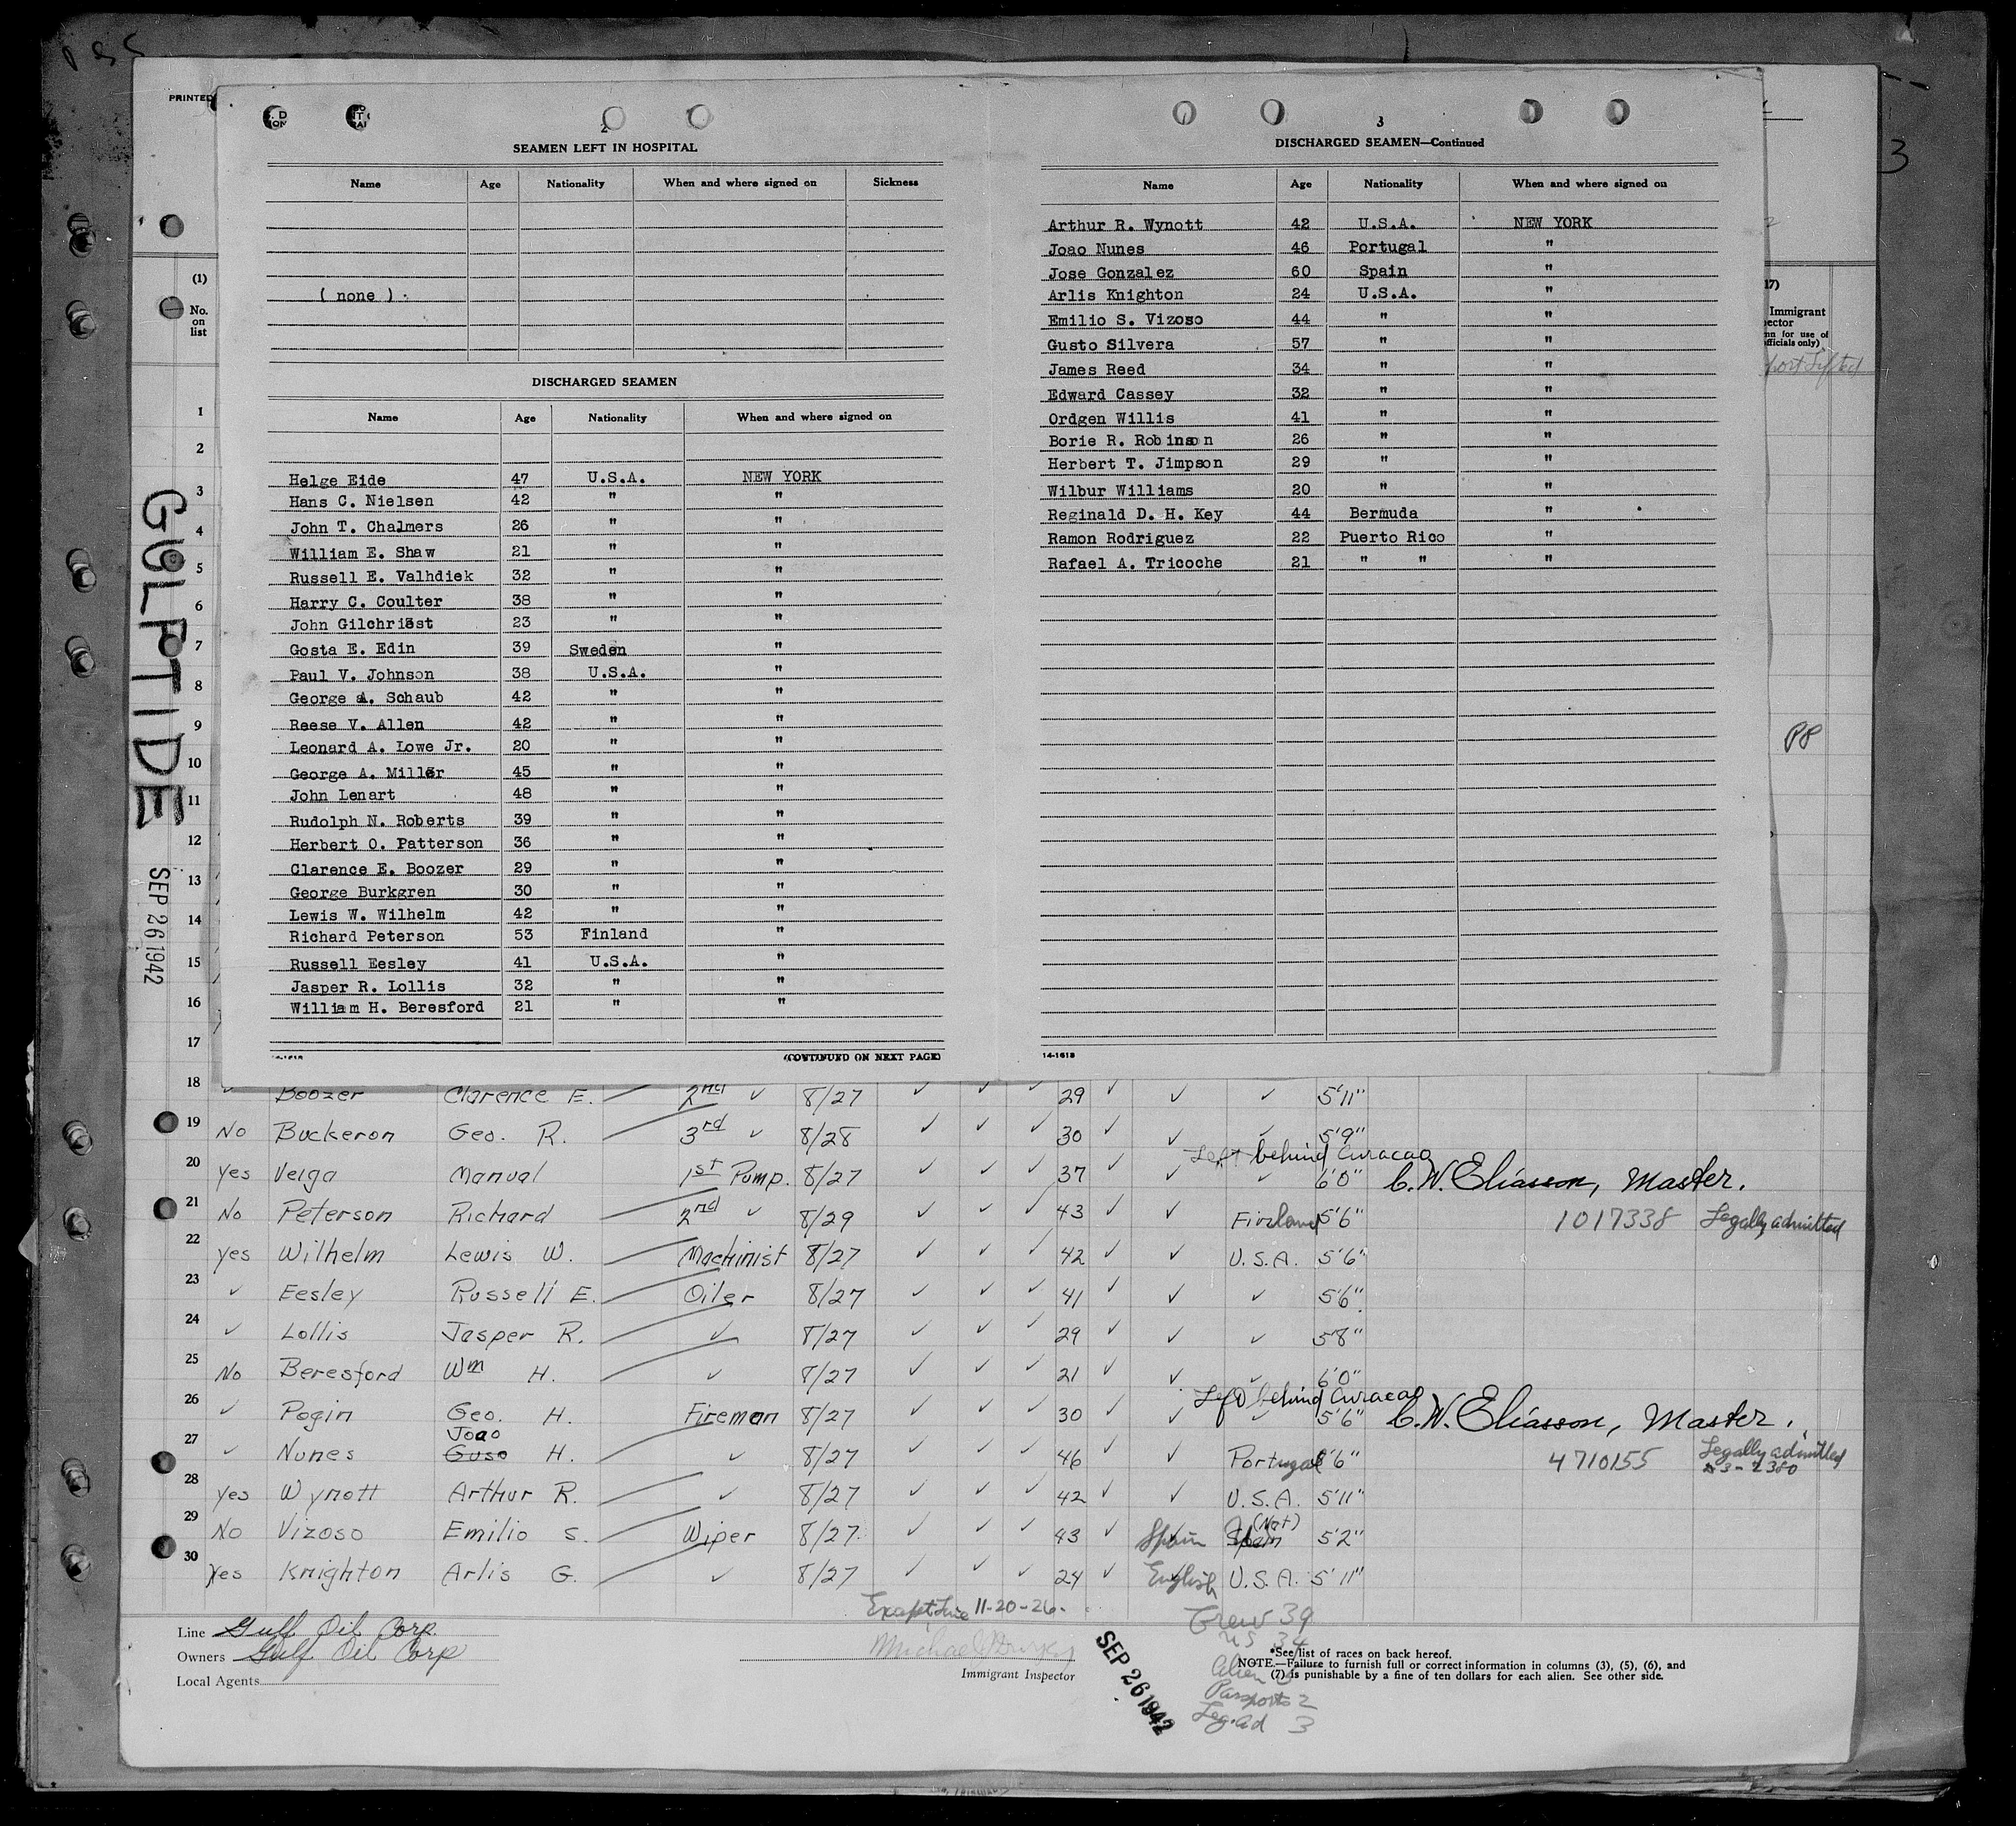 PRINTED
2
SEAMEN LEFT IN HOSPITAL
Name Age Nationality When and where signed on Sickness
( none )
DISCHARGED SEAMEN
Name Age Nationality When and where signed on
Helge Eide 47 U.S.A. NEW YORK
Hans C. Nielsen 42 " "
John T. Chalmers 26 " "
William E. Shaw 21 " "
Russell E. Valhdiek 32 " "
Harry C. Coulter 38 " "
John Gilchrist 23 " "
Gosta E. Edin 39 Sweden "
Paul V. Johnson 38 U.S.A. "
George A. Schaub 42 " "
Reese V. Allen 42 " "
Leonard A. Lowe Jr. 20 " "
George A. Miller 45 " "
John Lenart 48 " "
Rudolph N. Roberts 39 " "
Herbert O. Patterson 36 " "
Clarence E. Boozer 29 " "
George Burkgren 30 " "
Lewis W. Wilhelm 42 " "
Richard Peterson 53 Finland "
Russell Eesley 41 U.S.A. "
Jasper R. Lollis 32 " "
William H. Beresford 21 " "
(CONTINUED ON NEXT PAGE)
3
DISCHARGED SEAMEN—Continued
Name Age Nationality When and where signed on
Arthur R. Wynott 42 U.S.A. NEW YORK
Joao Nunes 46 Portugal "
Jose Gonzalez 60 Spain "
Arlis Knighton 24 U.S.A. "
Emilio S. Vizoso 44 " "
Gusto Silvera 57 " "
James Reed 34 " "
Edward Cassey 32 " "
Ordgen Willis 41 " "
Borie R. Robinson 26 " "
Herbert T. Jimpson 29 " "
Wilbur Williams 20 " "
Reginald D. H. Key 44 Bermuda "
Ramon Rodriguez 22 Puerto Rico "
Rafael A. Tricoche 21 " " "
14-1618
3
(1)
No. on list
17)
Immigrant
officials only)
PP
GULPTIDE
SEP 26 1942
1
2
3
4
5
6
7
8
9
10
11
12
13
14
15
16
17
18 ✓ Boozer Clarence E. 2nd ✓ 8/27 ✓ ✓ ✓ 29 ✓ ✓ ✓ 5'11"
19 No Buckeron Geo. R. 3rd ✓ 8/28 ✓ ✓ ✓ 30 ✓ ✓ ✓ 5'9"
Left behind Curacao
20 yes Veiga Manual 1st Pump. 8/27 ✓ ✓ ✓ 37 ✓ ✓ ✓ 6'0" C.W. Eliasson, Master.
21 No Peterson Richard 2nd ✓ 8/29 ✓ ✓ ✓ 43 ✓ ✓ Finland 5'6" 1017338 Legally admitted
22 yes Wilhelm Lewis W. Machinist 8/27 ✓ ✓ ✓ 42 ✓ ✓ U.S.A. 5'6"
23 ✓ Eesley Russell E. Oiler 8/27 ✓ ✓ ✓ 41 ✓ ✓ ✓ 5'6"
24 ✓ Lollis Jasper R. ✓ 8/27 ✓ ✓ ✓ 29 ✓ ✓ ✓ 5'8"
25 No Beresford Wm H. ✓ 8/27 ✓ ✓ ✓ 21 ✓ ✓ ✓ 6'0"
Left behind Curacao
26 ✓ Pogin Geo. H. Fireman 8/27 ✓ ✓ ✓ 30 ✓ ✓ ✓ 5'6" C.W. Eliasson, Master.
Joao
27 ✓ Nunes Guso H. ✓ 8/27 ✓ ✓ ✓ 46 ✓ ✓ Portugal 5'6" 4710155 Legally admitted
28 yes Wynott Arthur R. ✓ 8/27 ✓ ✓ ✓ 42 ✓ ✓ U.S.A. 5'11"
(Nat)
29 No Vizoso Emilio S. Wiper 8/27 ✓ ✓ ✓ 43 ✓ Spain Spain 5'2"
30 Yes Knighton Arlis G. ✓ 8/27 ✓ ✓ ✓ 24 ✓ English U.S.A. 5'11"
Except Line 11-20-26-
Crew 39
US 34
Line Gulf Oil Corp.
Owners Gulf Oil Corp
Local Agents
Immigrant Inspector
SEP 26 1942
*See list of races on back hereof.
NOTE.—Failure to furnish full or correct information in columns (3), (5), (6), and
(7) is punishable by a fine of ten dollars for each alien. See other side.
Alien
Passports 2
Leg. ad 3